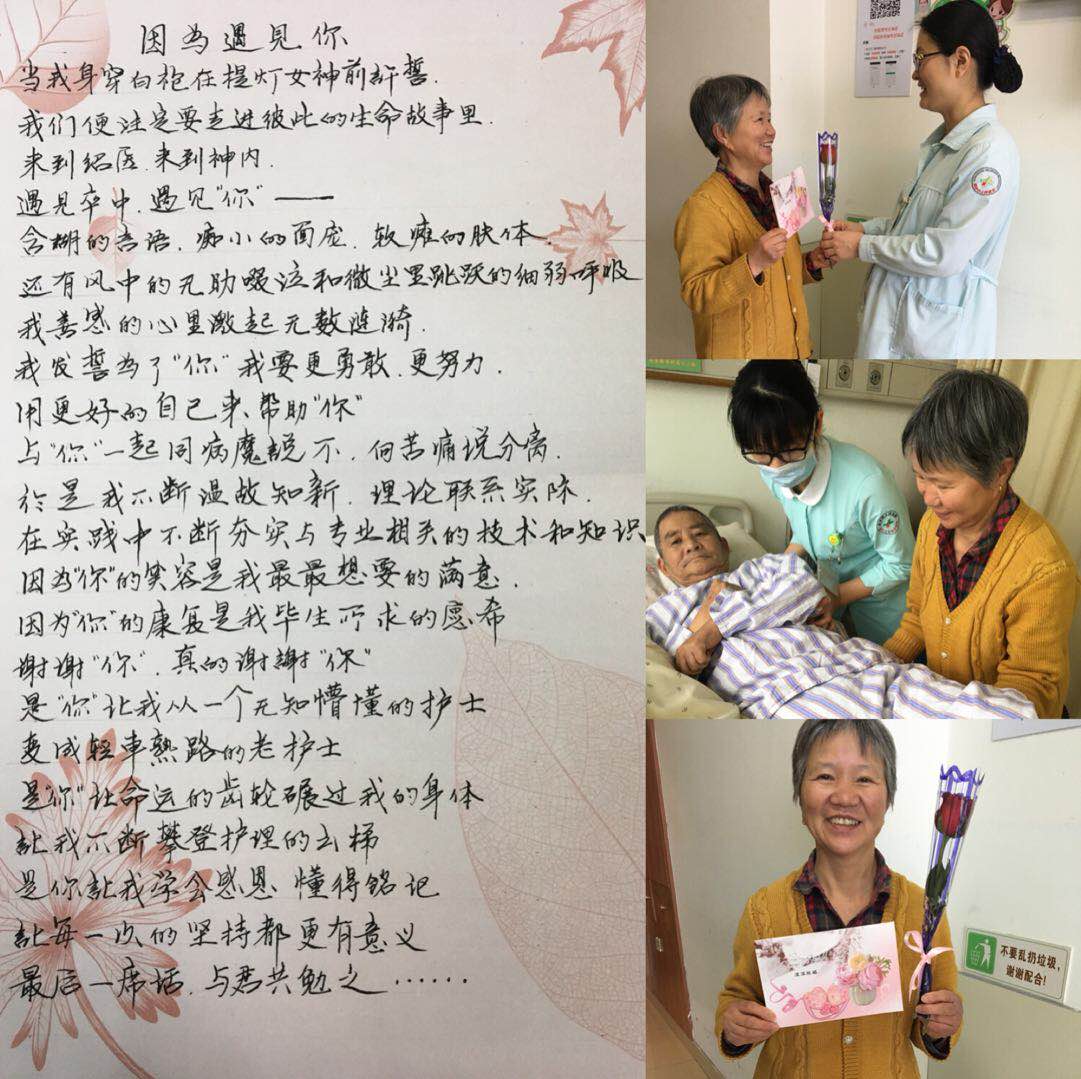 因为遇见你
当我身穿白袍在提灯女神前许誓.
我们便注定要走进彼此的生命故事里.
来到绍医.来到神内.
遇见卒中.遇见"你"——
含糊的言语.痴小的面庞.软瘫的肢体.
还有风中的无助啜泣和微尘里跳跃的细弱呼吸
我善感的心里激起无数涟漪.
我发誓为了"你"我要更勇敢.更努力.
用更好的自己来帮助"你"
与"你"一起同病魔说不.向苦痛说分离.
於是我不断温故知新.理论联系实际.
在实践中不断夯实与专业相关的技术和知识
因为"你"的笑容是我最最想要的满意.
因为"你"的康复是我毕生所求的愿希
谢谢"你".真的谢謝"你"
是"你"让我从一个无知懵懂的护士
变成轻车熟路的老护士
是"你"让命运的齿轮碾过我的身体
讓我不断攀登护理的云梯
是你讓我学会感恩 懂得铭记
讓每一次的坚持都更有意义
最后一席话.与君共勉之……
不要乱扔垃圾,
谢谢配合!